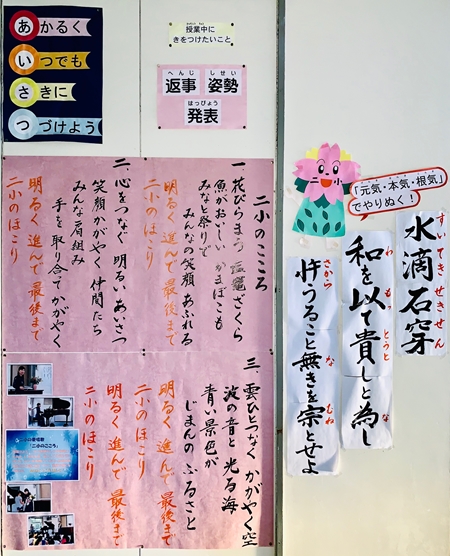 あかるく
いつでも
さきに
つづけよう
授業中に
きをつけたいこと
へんじ
返事
しせい
姿勢
はっぴょう
発表
二小のこころ
一、花びらまう 塩竈ざくら
魚がおいしい かまぼこも
みなと祭りで
みんなの笑顔 あふれる
明るく 進んで 最後まで
二小のほこり
二、心をつなぐ 明るい あいさつ
笑顔かがやく 仲間たち
みんなで肩組み
手を取り合って かがやく
明るく 進んで 最後まで
二小のほこり
三、雲ひとつなく かがやく空
波の音と 光る海
青い景色が
じまんの ふるさと
明るく 進んで 最後まで
二小のほこり
明るく 進んで 最後まで
二小のほこり
「二小のこころ」
二小
「元気・本気・根気」
でやりぬく!
すいてきせきせん
水滴石穿
わ もっ とうと な
和を以て貴しと為し
さから な むね
忤うること無きを宗とせよ